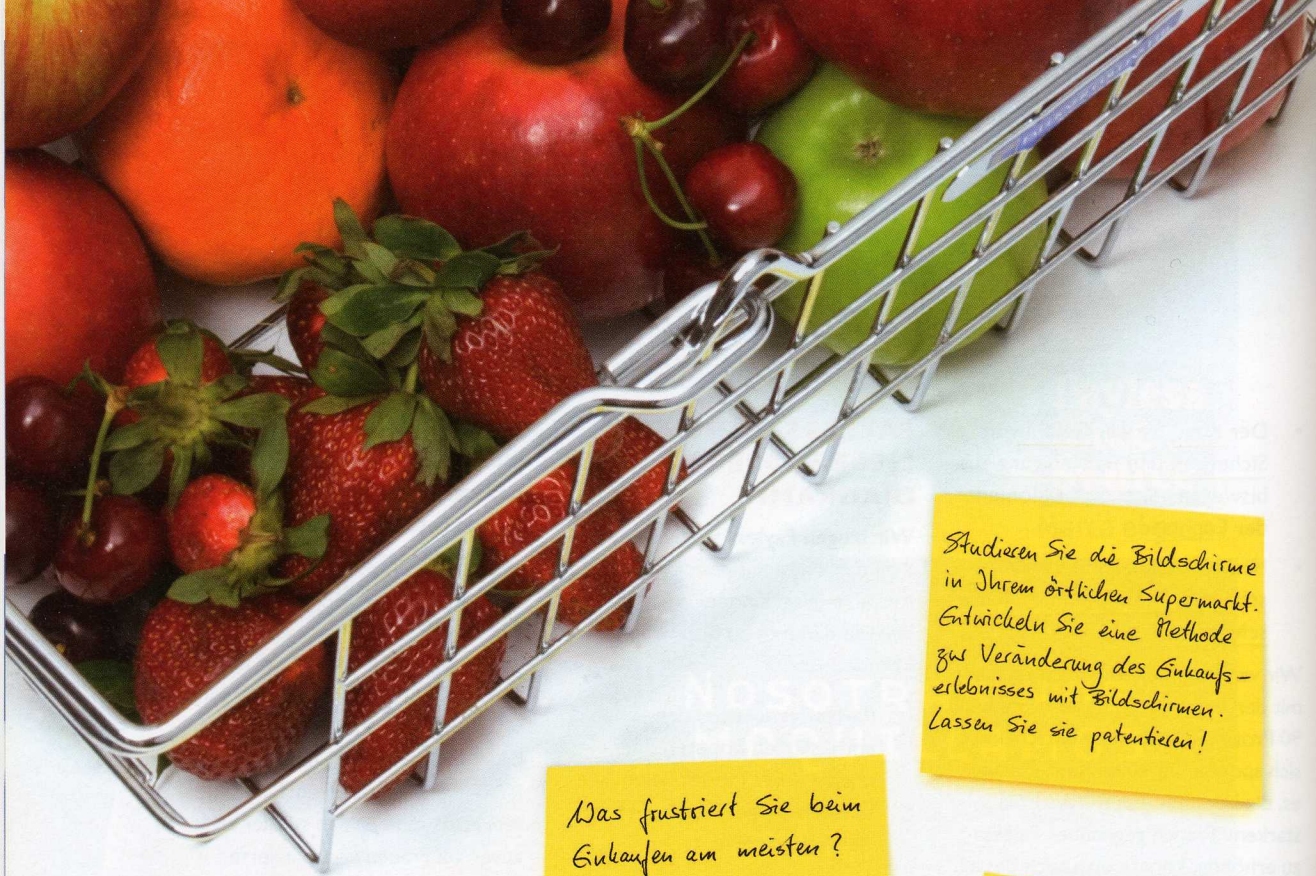 Studieren Sie die Bildschirme
in Ihrem örtlichen Supermarkt.
Entwickeln Sie eine Methode
zur Veränderung des Einkaufs-
erlebnisses mit Bildschirmen.
Lassen Sie sie patentieren!
Was frustriert Sie beim
Einkaufen am meisten?